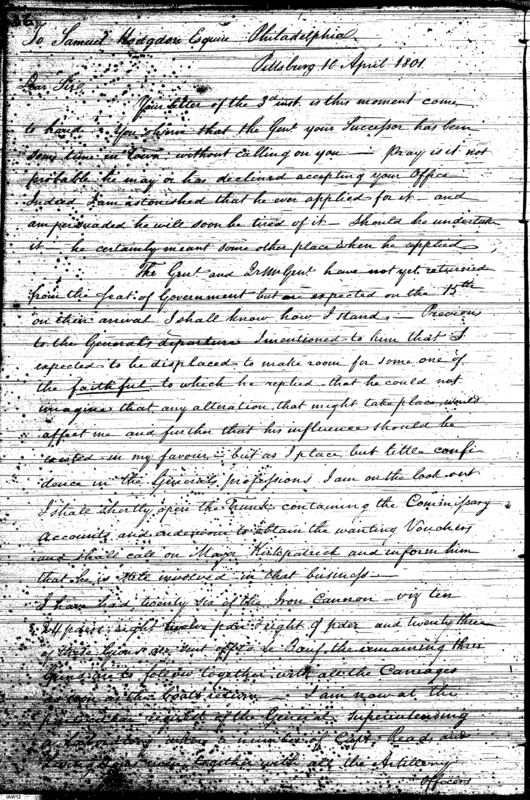 To Samuel Hodgdon Esquire Philadelphia
Pittsburg 10 April 1801.
Dear Sir,
Your letter of the 3d inst. is this moment come
to hand. You observe that the Gent your Successor has been
some time in Town without calling on you — Pray is it not
probable he may or has declined accepting your Office
Indeed I am astonished that he ever applied for it — and
am persuaded he will soon be tired of it — Should he undertake
it — he certainly meant some other place when he applied
The Genl and have not yet returned
from the seat of Government but are expected on the 15th
on their arrival I shall know how I stand — Previous
to the Generals departure I mentioned to him that I
expected to be displaced to make room for some one of
the faithful to which he replied that he could not
imagine that any alteration that might take place would
affect me and further that his influence should be
exerted in my favour — but as I place but little confi
dence in the Generals professions I am on the look out
I shall shortly open the Trunk containing the Commissary
Accounts and endeavour to obtain the wanting Vouchers
and shall call on Major Kirkpatrick and inform him
that he is still involved in that business —
I have had twenty six of the Iron Cannon — viz ten
24 pdrs, eight twelve pdrs & eight of pdrs — and twenty three
of these sent off the remaining three
are to follow together with all the Carriages
the boats return. I am now at the
request of the General Superintending
number of Capt. Read and
together with all the Artillery
Officers
IAW12